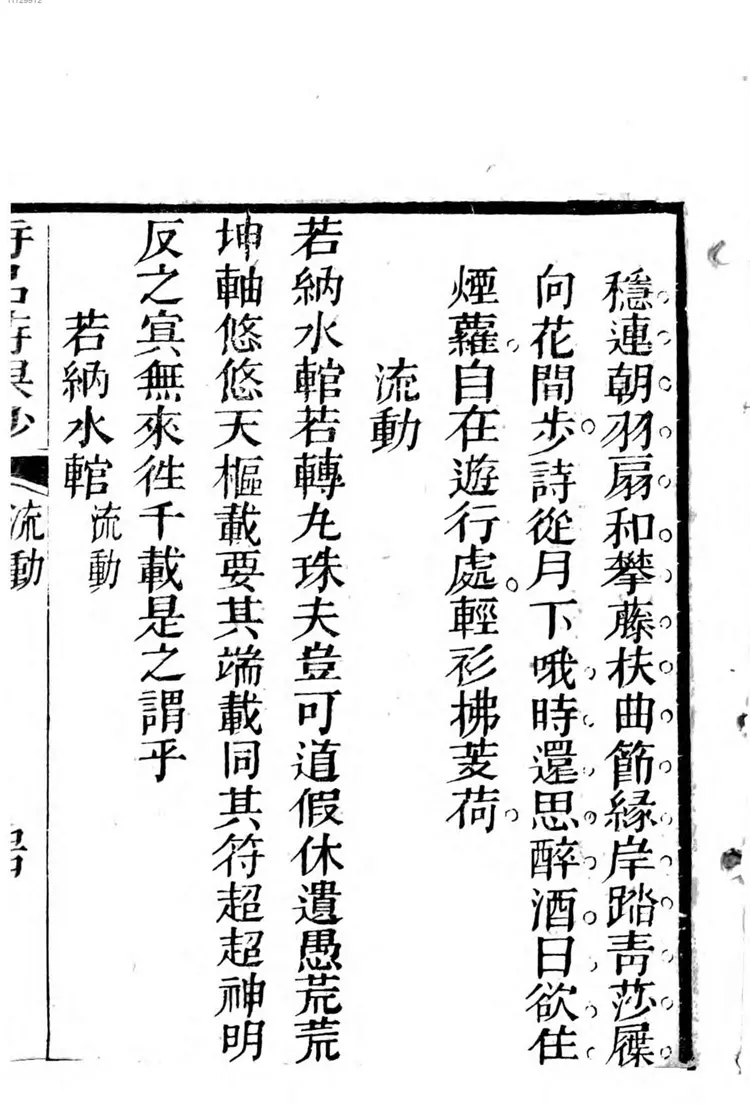 穩連朝羽扇和攀藤扶曲節緣岸踏靑莎屧
向花間步詩從月下哦時還思醉酒日欲住
煙蘿自在遊行處輕衫拂芰荷
流動
若納水輨若轉丸珠夫豈可道假休遺愚荒荒
坤軸悠悠天樞載要其端載同其符超超神明
反之㝠無來徃千載是之謂乎
若納水輨流動
流動